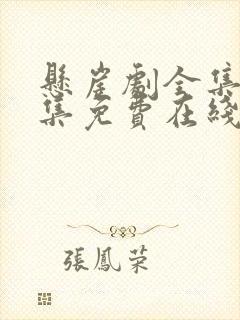 懸崖劇全集
集免費在綫
張鳳荣